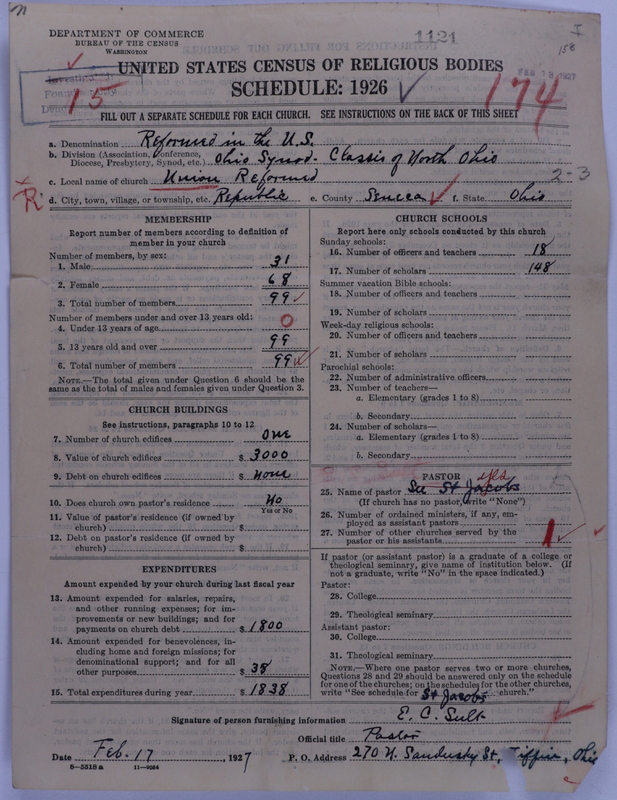 n
DEPARTMENT OF COMMERCE
BUREAU OF THE CENSUS
WASHINGTON
1121
I
158
UNITED STATES CENSUS OF RELIGIOUS BODIES
FEB 18 1927
SCHEDULE: 1926
15
174
FILL OUT A SEPARATE SCHEDULE FOR EACH CHURCH. SEE INSTRUCTIONS ON THE BACK OF THIS SHEET
a. Denomination Reformed in the U.S.
b. Division (Association, Conference, Diocese, Presbytery, Synod, etc.) Ohio Synod - Classis of North Ohio
c. Local name of church Union Reformed
2-3
R
d. City, town, village, or township, etc. Republic e. County Seneca f. State Ohio
MEMBERSHIP
Report number of members according to definition of
member in your church
Number of members, by sex:
1. Male 31
2. Female 68
3. Total number of members 99
Number of members under and over 13 years old:
4. Under 13 years of age 0
5. 13 years old and over 99
6. Total number of members 99
NOTE.—The total given under Question 6 should be the
same as the total of males and females given under Question 3.
CHURCH BUILDINGS
See instructions, paragraphs 10 to 12
7. Number of church edifices One
8. Value of church edifices $ 3000
9. Debt on church edifices $ None
10. Does church own pastor's residence No
Yes or No
11. Value of pastor's residence (if owned by
church) $
12. Debt on pastor's residence (if owned by
church) $
EXPENDITURES
Amount expended by your church during last fiscal year
13. Amount expended for salaries, repairs,
and other running expenses; for im-
provements or new buildings; and for
payments on church debt $ 1800
14. Amount expended for benevolences, in-
cluding home and foreign missions; for
denominational support; and for all
other purposes $ 38
15. Total expenditures during year $ 1838
CHURCH SCHOOLS
Report here only schools conducted by this church
Sunday schools:
16. Number of officers and teachers 18
17. Number of scholars 148
Summer vacation Bible schools:
18. Number of officers and teachers
19. Number of scholars
Week-day religious schools:
20. Number of officers and teachers
21. Number of scholars
Parochial schools:
22. Number of administrative officers
23. Number of teachers—
a. Elementary (grades 1 to 8)
b. Secondary
24. Number of scholars—
a. Elementary (grades 1 to 8)
b. Secondary
PASTOR yes
25. Name of pastor See St Jacobs
(If church has no pastor, write "None")
26. Number of ordained ministers, if any, em-
ployed as assistant pastors
27. Number of other churches served by the
pastor or his assistants 1
If pastor (or assistant pastor) is a graduate of a college or
theological seminary, give name of institution below. (If
not a graduate, write "No" in the space indicated.)
Pastor:
28. College
29. Theological seminary
Assistant pastor:
30. College
31. Theological seminary
NOTE.—Where one pastor serves two or more churches,
Questions 28 and 29 should be answered only on the schedule
for one of the churches; on the schedules for the other churches,
write "See schedule for St Jacobs church."
Signature of person furnishing information E. C. Sult
Official title Pastor
Date Feb. 17, 1927 P. O. Address 270 N. Sandusky St, Tiffin, Ohio
8—5318 a 11—9024